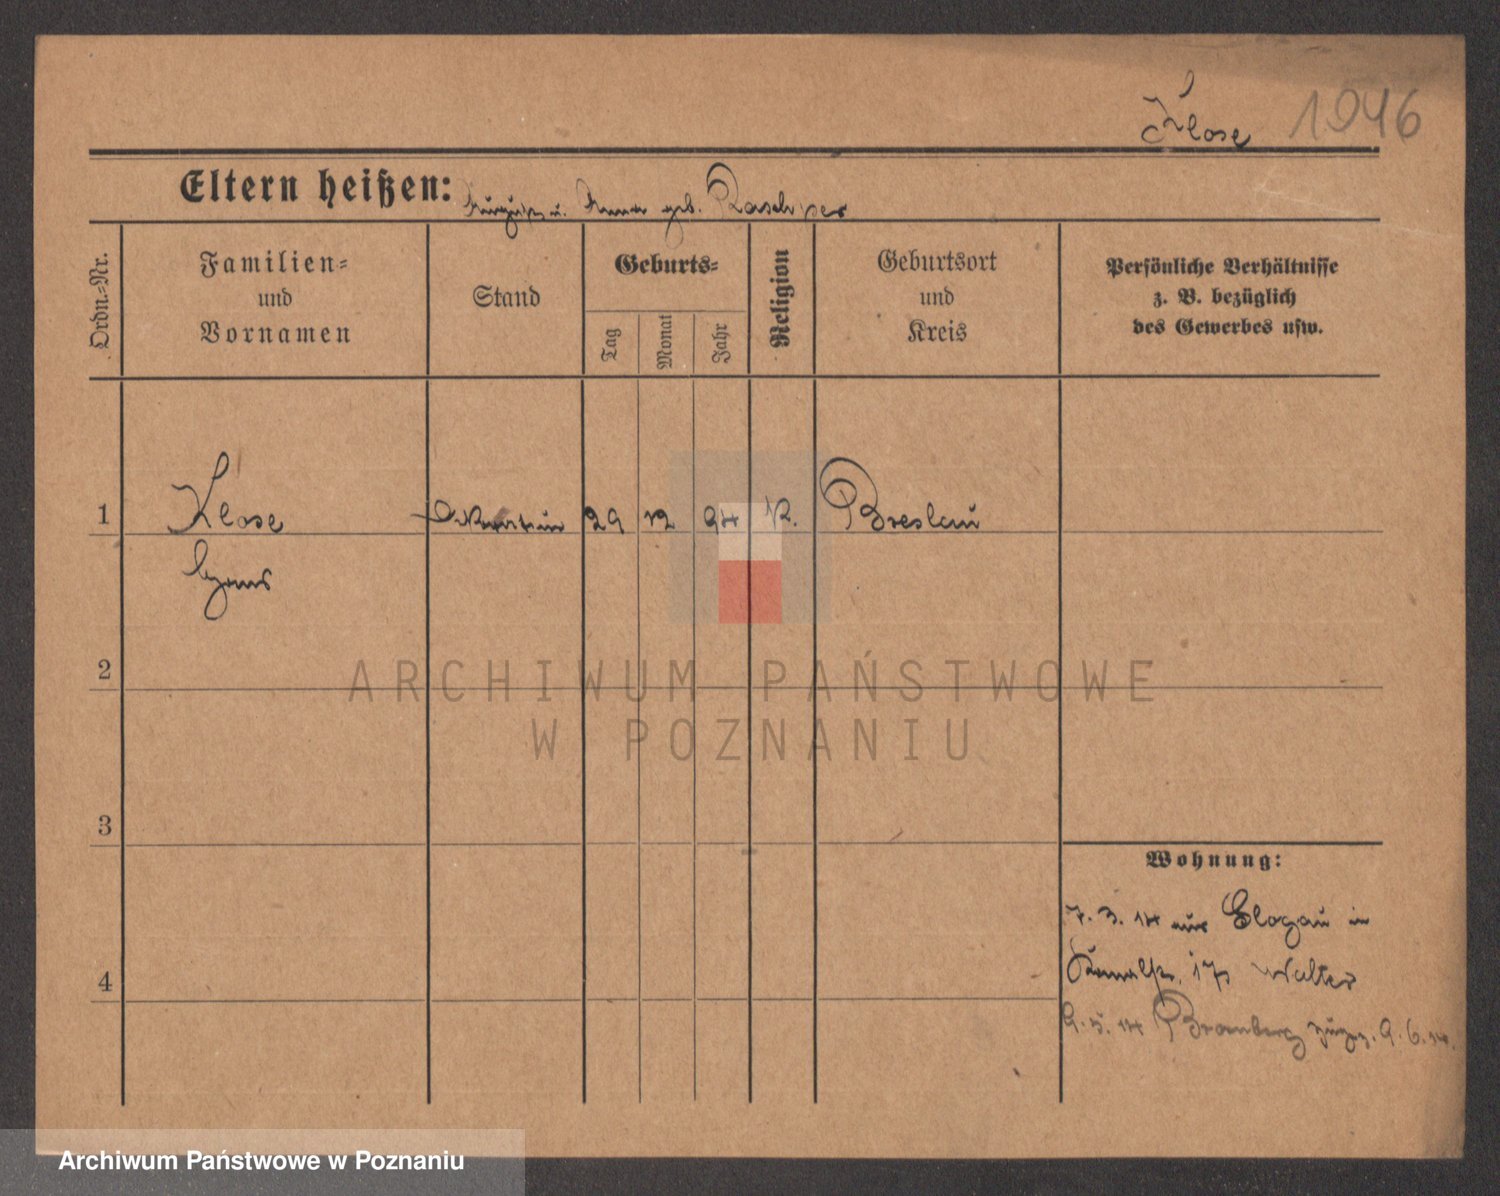 Klose 1946
Eltern heißen: August u. Anna geb.
Ordn.-Nr.
Familien-
und
Vornamen
Stand
Geburts-
Tag
Monat
Jahr
Religion
Geburtsort
und
Kreis
Persönliche Verhältnisse
z. B. bezüglich
des Gewerbes usw.
1 Klose 29 12 94 K. Breslau
2
3
4
Wohnung:
7. 3. 14 aus Glogau in
17 Walter
9. 5. 14 Bromberg 9. 6. 14.
ARCHIWUM PAŃSTWOWE
W POZNANIU
Archiwum Państwowe w Poznaniu